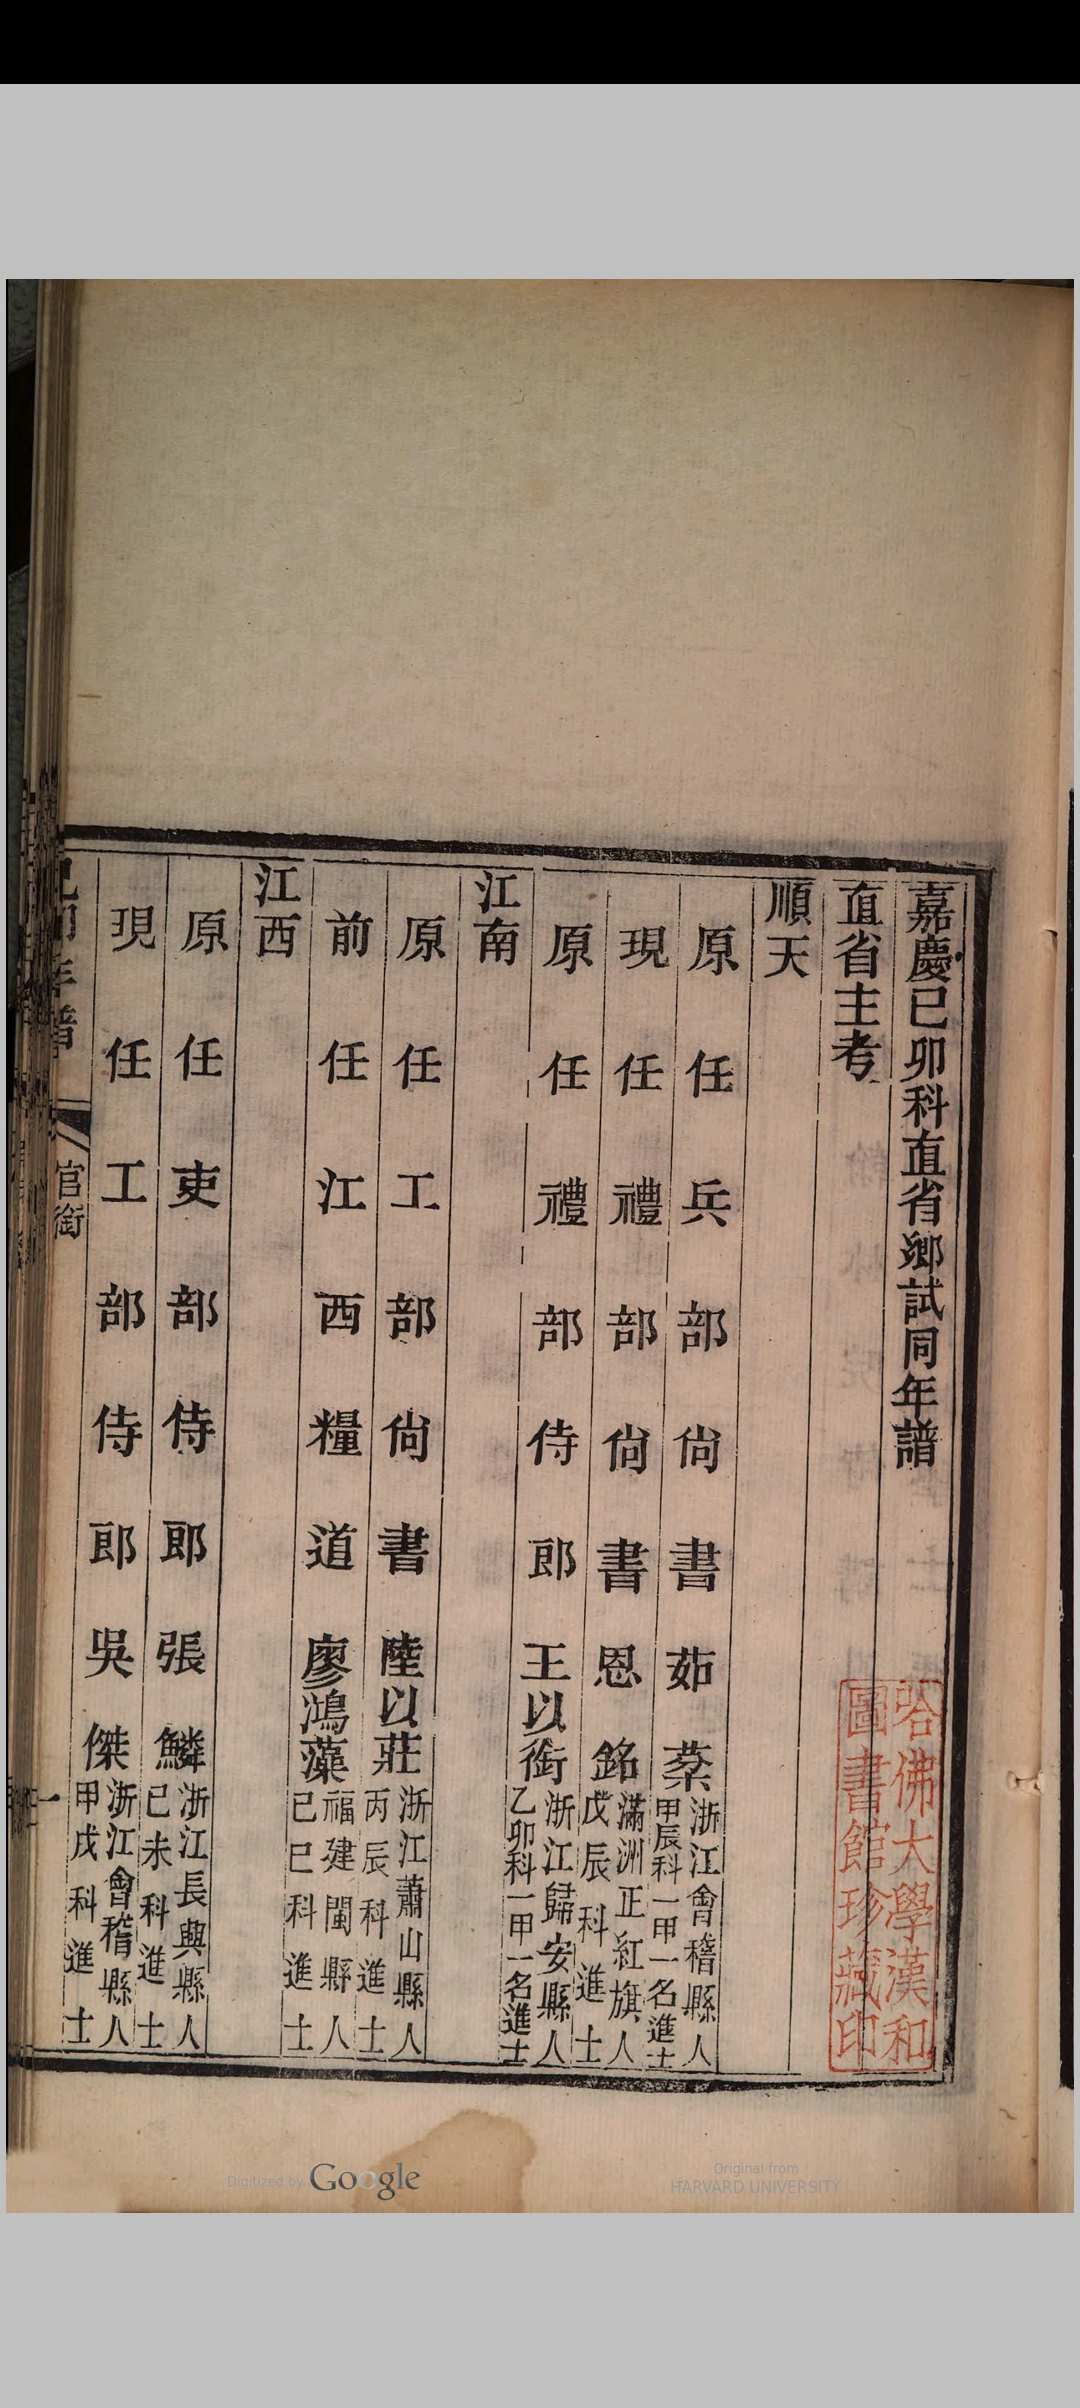 嘉慶己卯科直省鄉試同年譜
直省主考
順天
原任兵部尚書茹棻浙江會稽縣人
甲辰科一甲一名進士
現任禮部尚書恩銘滿洲正紅旗人
戊辰科進士
原任禮部侍郎王以銜浙江歸安縣人
乙卯科一甲一名進士
江南
原任工部尚書陸以莊浙江蕭山縣人
丙辰科進士
前任江西糧道廖鴻藻福建閩縣人
己巳科進士
江西
原任吏部侍郎張鱗浙江長興縣人
己未科進士
現任工部侍郎吳傑浙江會稽縣人
甲戌科進士
己卯年譜
官銜
一
哈佛大學漢和
圖書館珍藏印
Digitized by Google
Original from
HARVARD UNIVERSITY